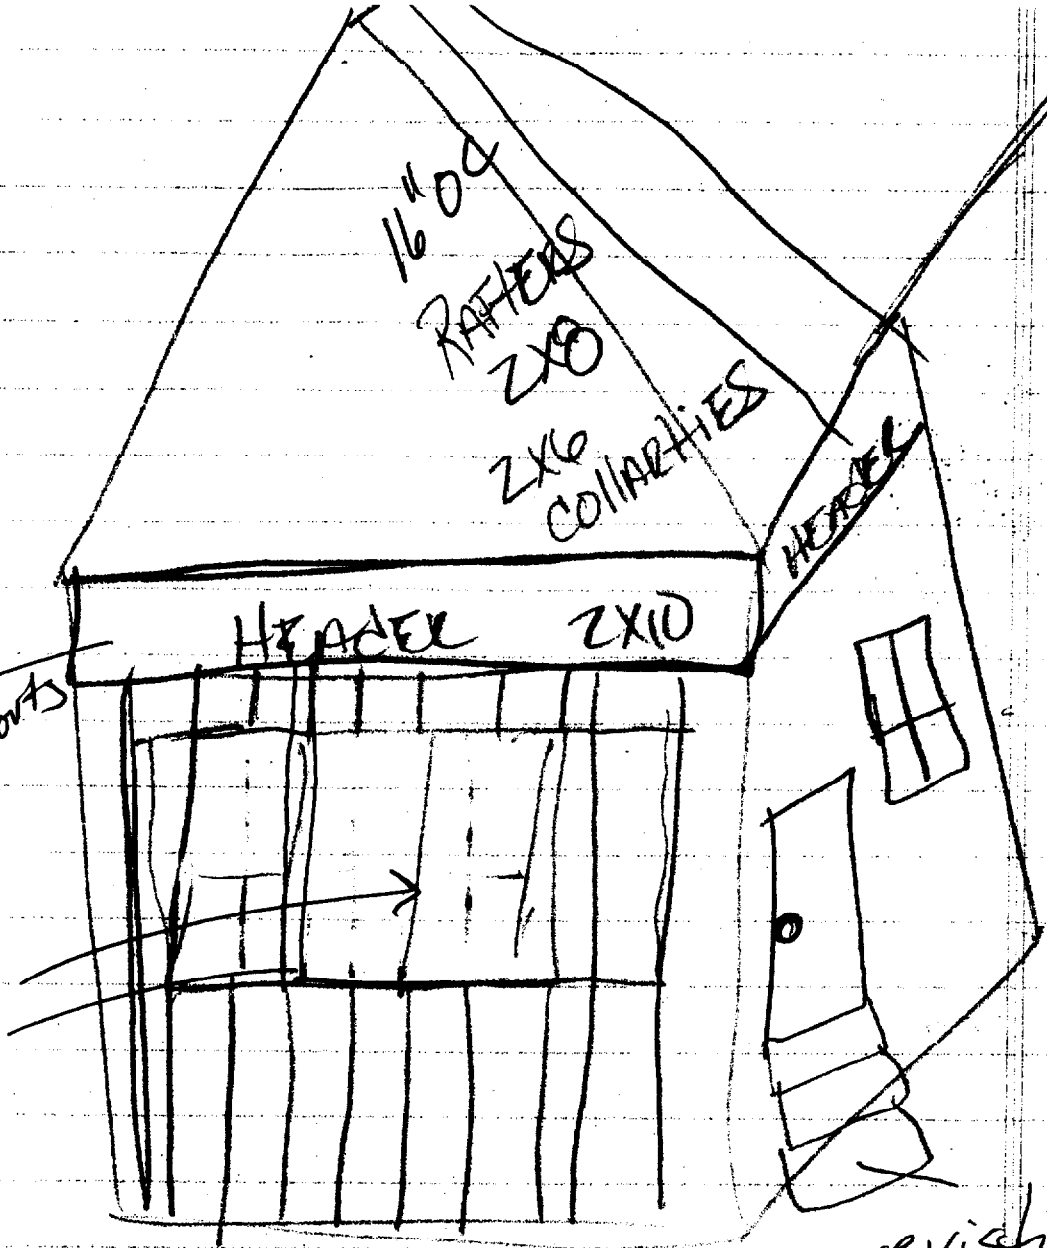 16" OC
RAFTERS
2X8
2X6
COllARTIES
HEADER
HEADER 2X10